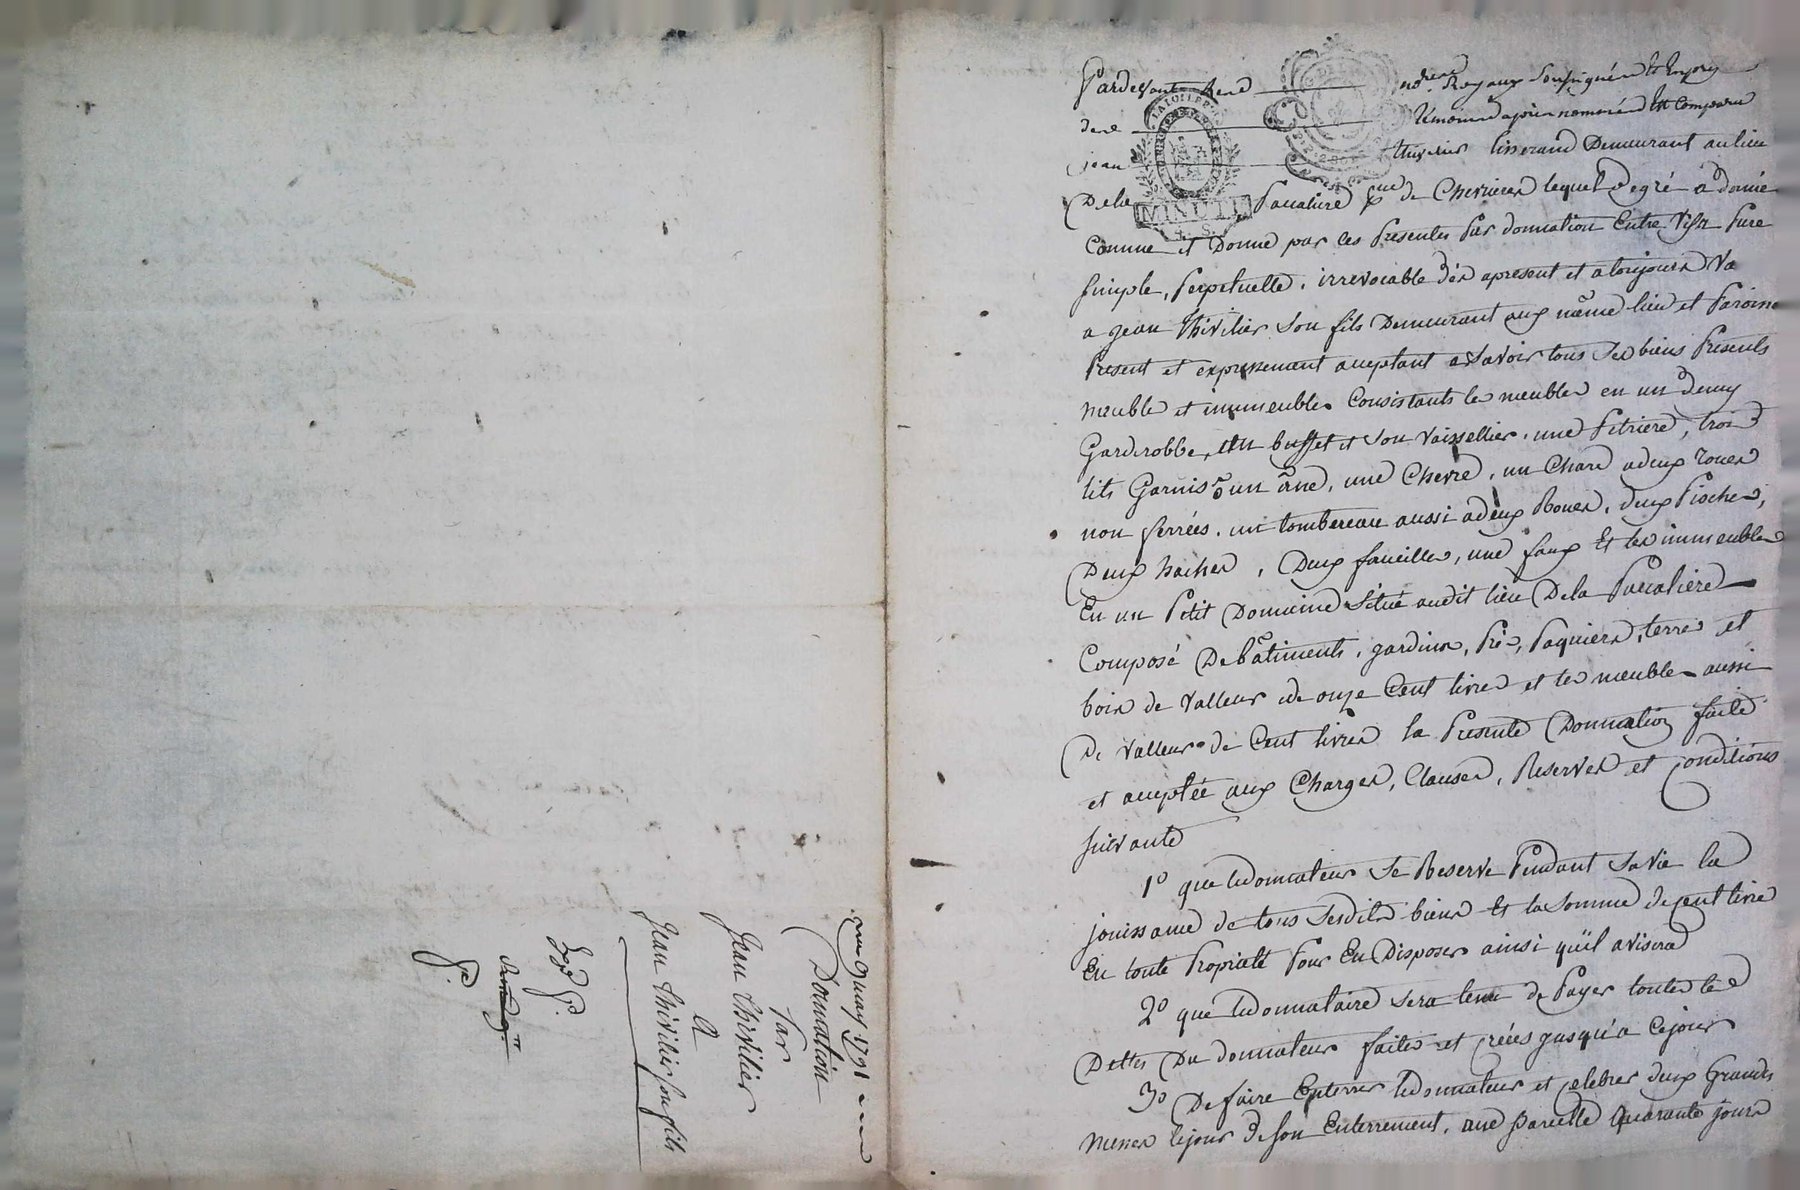 Pardevant René no.re Royaux Soussigné et En prés
de témoins après nommés Est Comparu
jean thivilier tisserand Demeurant au lieu
De la Paccaliere p.sse de Chevrieres lequel de gré a donné
Comme il Donne par ces Presentes Par donnation Entre Vifs Pure
Simple, Perpetuelle, irrevocable dès apresent et a toujours Va
a Jean thivilier Son fils Demeurant aux même lieu et Paroisse
Present et expressement acceptant a Savoir tous Ses biens Presents
meuble et immeubles Consistants les meubles en un demy
Garderobbe, un buffet et Son Vaissellier, une Petriere, trois
lits Garnis, un âne, une Chevre, un Chard a deux roues
non ferrées, un tombereau aussi a deux Roues, deux Pioches,
Deux haches, Deux faucilles, une faux Et les immeubles
En un Petit Domaine Situé audit lieu De la Paccaliere
Composé De bâtiments, jardins, Pré, Paquiers, terres et
bois de Valleur de onze Cent livres et les meubles aussi
De Valleur de Cent livres la Presente Donnation faite
et acceptée aux Charges, Clauses, Reserves et Conditions
Suivante
1º que le donnateur Se Reserve Pendant Sa Vie la
jouissance de tous Sesdits biens Et la Somme de Cent livre
En toute Proprieté Pour En Disposer ainsi qu'il avisera
2º que le donnataire Sera tenu de Payer toutes les
Dettes Du donnateur faites et créées jusqu'a Ce jour
3º De faire Enterrer le donnateur et Celebrer deux Grandes
Messes le jour de Son Enterrement, une pareille Quarante jours
may 1791
Donnation
Par
Jean thivilier
A
Jean thivilier Son fils